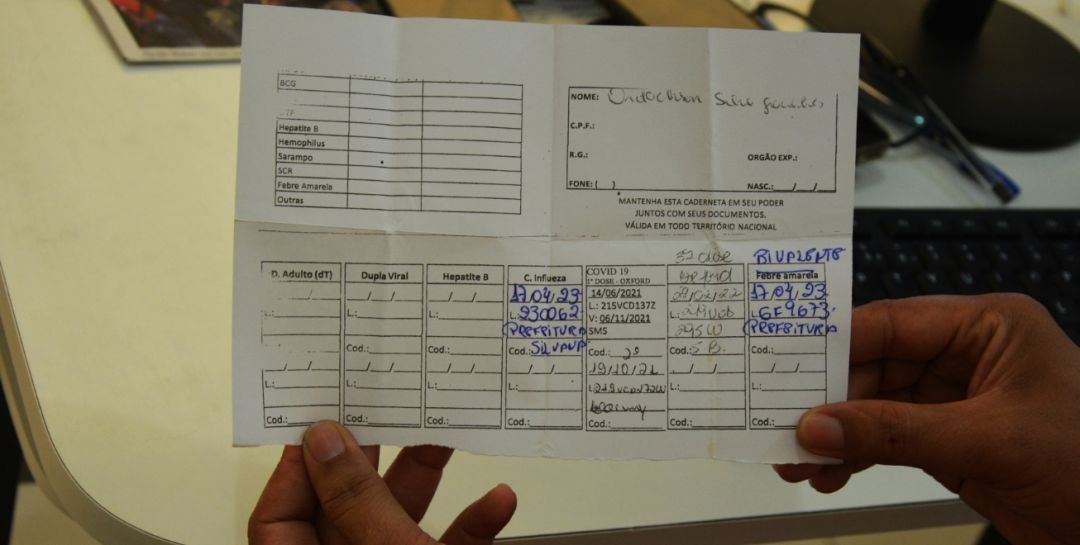 BCG
Hepatite B
Hemophilus
Sarampo
SCR
Febre Amarela
Outras
NOME:
C.P.F.:
R.G.: ORGÃO EXP.:
FONE: ( ) NASC.:___/___/___
MANTENHA ESTA CADERNETA EM SEU PODER
JUNTOS COM SEUS DOCUMENTOS.
VÁLIDA EM TODO TERRITÓRIO NACIONAL
D. Adulto (dT)
L.:
Cod.:
Dupla Viral
/ /
L.:
Cod.:
/ /
L.:
Cod.:
Hepatite B
/ /
L.:
Cod.:
/ /
L.:
Cod.:
C. Influeza
17,04,23
L.: 230062
PREFEITURA
Cod.: SILVANA
/ /
L.:
Cod.:
COVID 19
1ª DOSE - OXFORD
14/06/2021
L.: 215VCD137Z
V: 06/11/2021
SMS
Cod.: 2ª
19/10/21
L.:
Cod.:
3ª dose
L.:
Cod.:
/ /
L.:
Cod.:
BIVALENTE
Febre amarela
17,04,23
L. GF9673
PREFEITURA
Cod.:
/ /
L.:
Cod.: